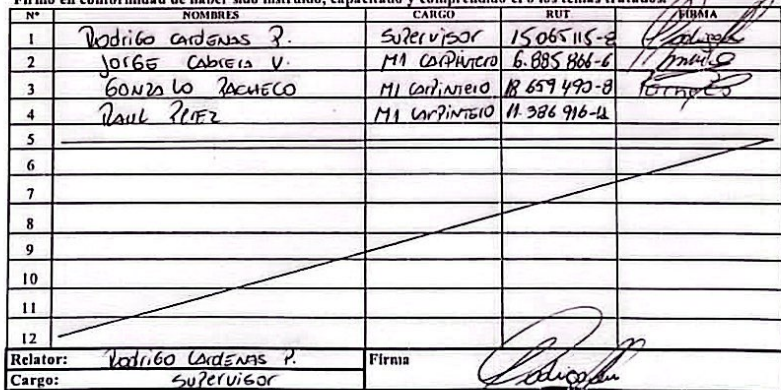 Firmo en conformidad de haber sido instruido, capacitado y comprendido el o los temas tratados.
N° NOMBRES CARGO RUT FIRMA
1 Rodrigo Cardenas P. Supervisor 15065115-2
2 Jorge Cabrera V. M1 Carpintero 6.885866-6
3 Gonzalo Pacheco M1 Carpintero 18659490-8
4 Raul Perez M1 Carpintero 11.386916-
5
6
7
8
9
10
11
12
Relator: Rodrigo Cardenas P. Firma
Cargo: Supervisor